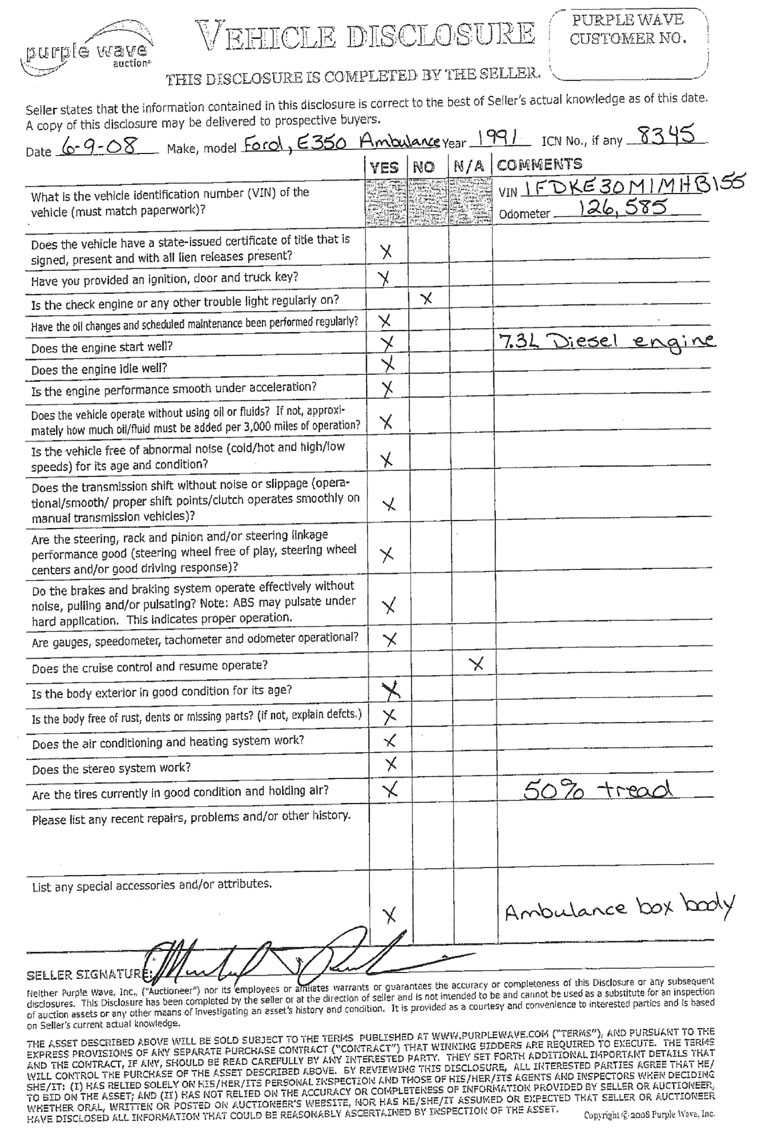 purple wave
auction®
VEHICLE DISCLOSURE
PURPLE WAVE
CUSTOMER NO.
THIS DISCLOSURE IS COMPLETED BY THE SELLER.
Seller states that the information contained in this disclosure is correct to the best of Seller's actual knowledge as of this date.
A copy of this disclosure may be delivered to prospective buyers.
Date 6-9-08 Make, model Ford, E350 Ambulance Year 1991 ICN No., if any 8345
YES NO N/A COMMENTS
What is the vehicle identification number (VIN) of the
vehicle (must match paperwork)?
VIN 1FDKE30M1MHB155
Odometer 126,585
Does the vehicle have a state-issued certificate of title that is
signed, present and with all lien releases present? X
Have you provided an ignition, door and truck key? X
Is the check engine or any other trouble light regularly on? X
Have the oil changes and scheduled maintenance been performed regularly? X
Does the engine start well? X 7.3L Diesel engine
Does the engine idle well? X
Is the engine performance smooth under acceleration? X
Does the vehicle operate without using oil or fluids? If not, approxi-
mately how much oil/fluid must be added per 3,000 miles of operation? X
Is the vehicle free of abnormal noise (cold/hot and high/low
speeds) for its age and condition? X
Does the transmission shift without noise or slippage (opera-
tional/smooth/ proper shift points/clutch operates smoothly on
manual transmission vehicles)? X
Are the steering, rack and pinion and/or steering linkage
performance good (steering wheel free of play, steering wheel
centers and/or good driving response)? X
Do the brakes and braking system operate effectively without
noise, pulling and/or pulsating? Note: ABS may pulsate under
hard application. This indicates proper operation. X
Are gauges, speedometer, tachometer and odometer operational? X
Does the cruise control and resume operate? X
Is the body exterior in good condition for its age? X
Is the body free of rust, dents or missing parts? (if not, explain defcts.) X
Does the air conditioning and heating system work? X
Does the stereo system work? X
Are the tires currently in good condition and holding air? X 50% tread
Please list any recent repairs, problems and/or other history.
List any special accessories and/or attributes.
X Ambulance box body
SELLER SIGNATURE:
Neither Purple Wave, Inc., ("Auctioneer") nor its employees or affiliates warrants or guarantees the accuracy or completeness of this Disclosure or any subsequent
disclosures. This Disclosure has been completed by the seller or at the direction of seller and is not intended to be and cannot be used as a substitute for an inspection
of auction assets or any other means of investigating an asset's history and condition. It is provided as a courtesy and convenience to interested parties and is based
on Seller's current actual knowledge.
THE ASSET DESCRIBED ABOVE WILL BE SOLD SUBJECT TO THE TERMS PUBLISHED AT WWW.PURPLEWAVE.COM ("TERMS"), AND PURSUANT TO THE
EXPRESS PROVISIONS OF ANY SEPARATE PURCHASE CONTRACT ("CONTRACT") THAT WINNING BIDDERS ARE REQUIRED TO EXECUTE. THE TERMS
AND THE CONTRACT, IF ANY, SHOULD BE READ CAREFULLY BY ANY INTERESTED PARTY. THEY SET FORTH ADDITIONAL IMPORTANT DETAILS THAT
WILL CONTROL THE PURCHASE OF THE ASSET DESCRIBED ABOVE. BY REVIEWING THIS DISCLOSURE, ALL INTERESTED PARTIES AGREE THAT HE/
SHE/IT: (I) HAS RELIED SOLELY ON HIS/HER/ITS PERSONAL INSPECTION AND THOSE OF HIS/HER/ITS AGENTS AND INSPECTORS WHEN DECIDING
TO BID ON THE ASSET; AND (II) HAS NOT RELIED ON THE ACCURACY OR COMPLETENESS OF INFORMATION PROVIDED BY SELLER OR AUCTIONEER,
WHETHER ORAL, WRITTEN OR POSTED ON AUCTIONEER'S WEBSITE, NOR HAS HE/SHE/IT ASSUMED OR EXPECTED THAT SELLER OR AUCTIONEER
HAVE DISCLOSED ALL INFORMATION THAT COULD BE REASONABLY ASCERTAINED BY INSPECTION OF THE ASSET.
Copyright © 2008 Purple Wave, Inc.